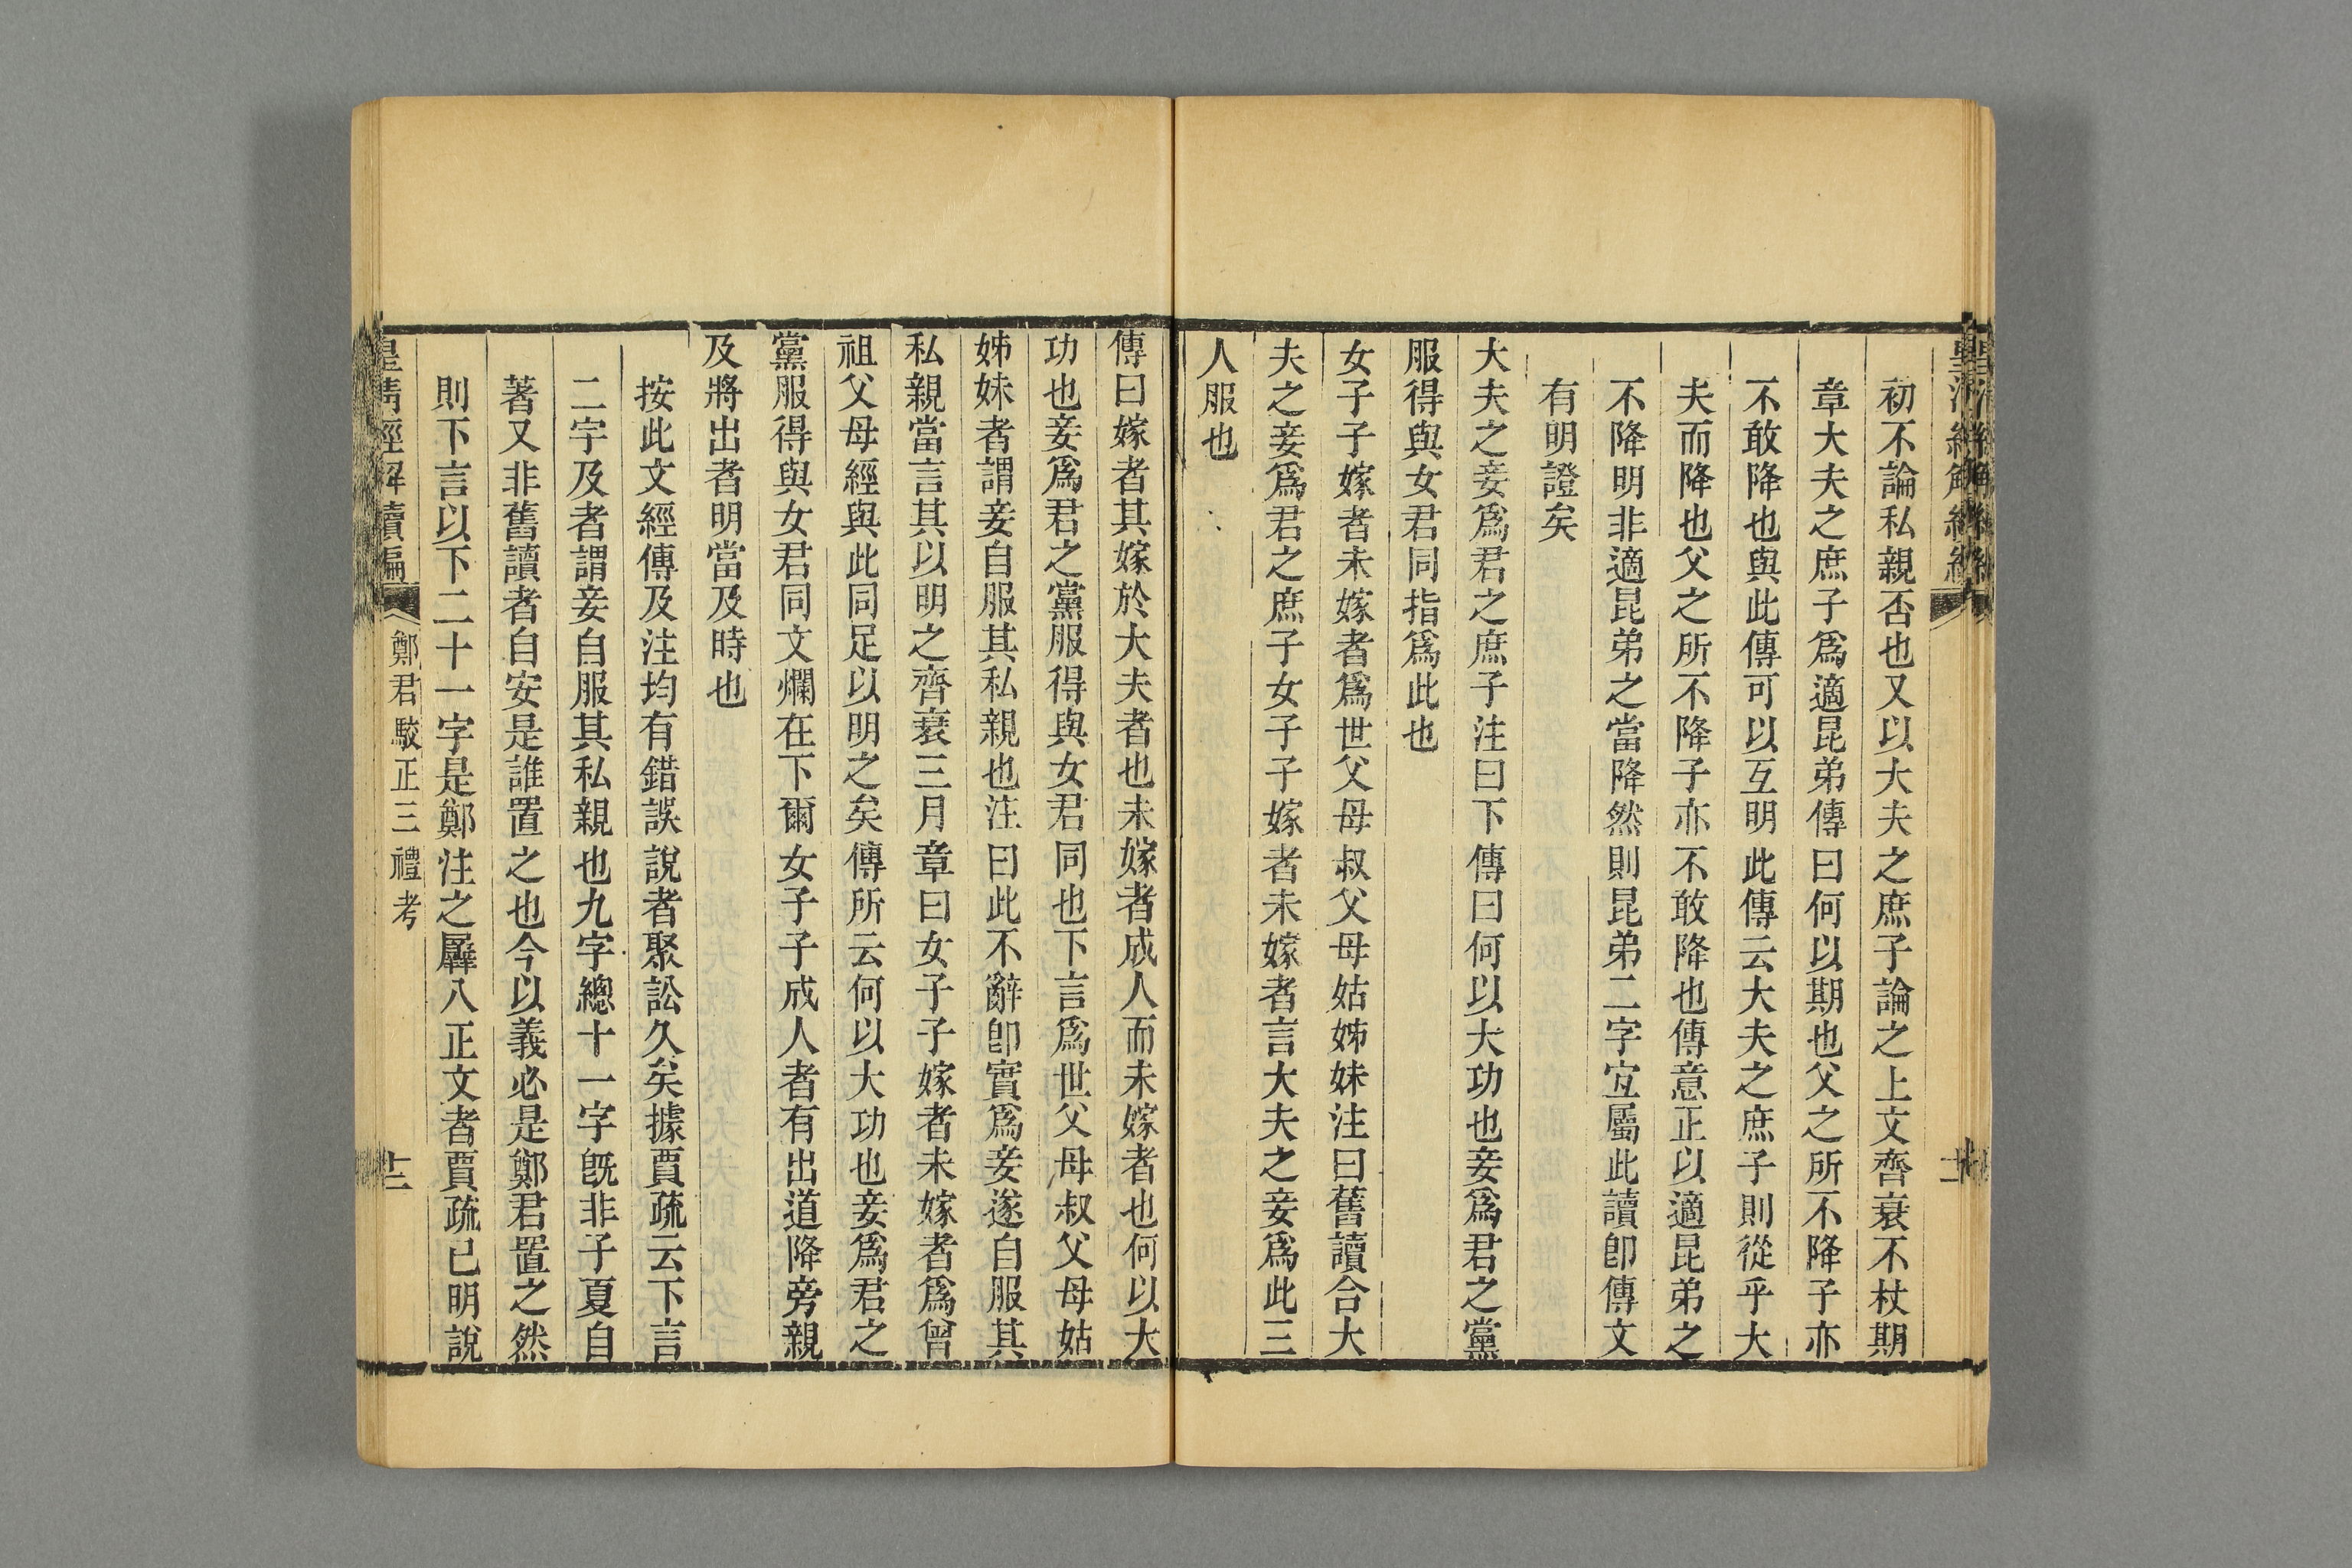 初不論私親否也又以大夫之庶子論之上文齊衰不杖期
章大夫之庶子爲適昆弟傳曰何以期也父之所不降子亦
不敢降也與此傳可以互明此傳云大夫之庶子則從乎大
夫而降也父之所不降子亦不敢降也傳意正以適昆弟之
不降明非適昆弟之當降然則昆弟二字宐屬此讀卽傳文
有明證矣
大夫之妾爲君之庶子注曰下傳曰何以大功也妾爲君之黨
服得與女君同指爲此也
女子子嫁者未嫁者爲世父母叔父母姑姊妹注曰舊讀合大
夫之妾爲君之庶子女子子嫁者未嫁者言大夫之妾爲此三
人服也
傳曰嫁者其嫁於大夫者也未嫁者成人而未嫁者也何以大
功也妾爲君之黨服得與女君同也下言爲世父母叔父母姑
姊妹者謂妾自服其私親也注曰此不辭卽實爲妾遂自服其
私親當言其以明之齊衰三月章曰女子子嫁者未嫁者爲曾
祖父母經與此同足以明之矣傳所云何以大功也妾爲君之
黨服得與女君同文爛在下爾女子子成人者有出道降旁親
及將出者明當及時也
按此文經傳及注均有錯誤說者聚訟久矣據賈疏云下言
二字及者謂妾自服其私親也九字總十一字旣非子夏自
著又非舊讀者自安是誰置之也今以義必是鄭君置之然
則下言以下二十一字是鄭注之羼入正文者賈疏已明說
皇淸經解續編
鄭君駮正三禮考
十二